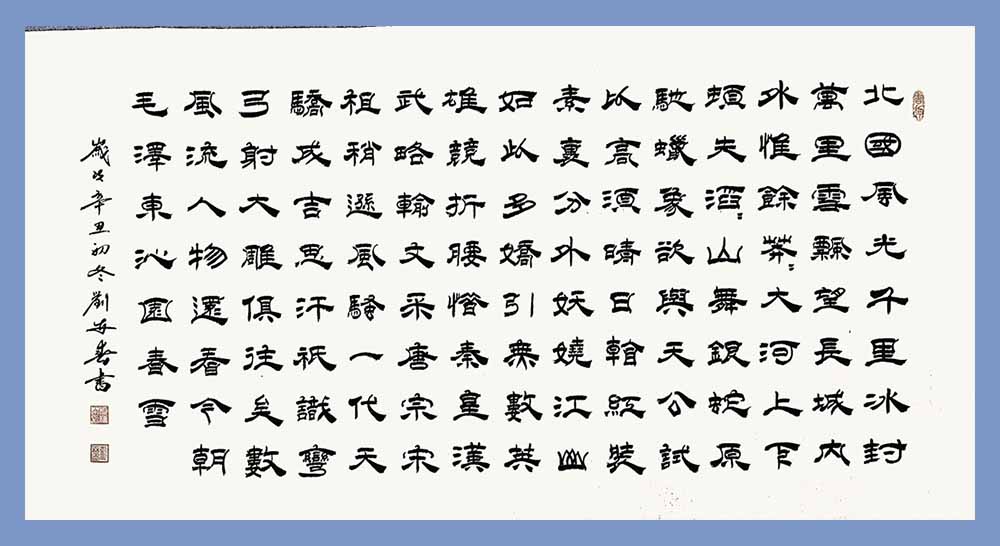 北國風光千里冰封
萬里雪飄望長城內
外惟餘莽〻大河上下
頓失滔〻山舞銀蛇原
馳蠟象欲與天公試
比高須晴日看紅裝
素裹分外妖嬈江山
如此多嬌引無數英
雄競折腰惜秦皇漢
武略輸文采唐宗宋
祖稍遜風騷一代天
驕成吉思汗祇識彎
弓射大雕俱往矣數
風流人物還看今朝
毛澤東沁園春雪
歲次辛丑初冬劉春書